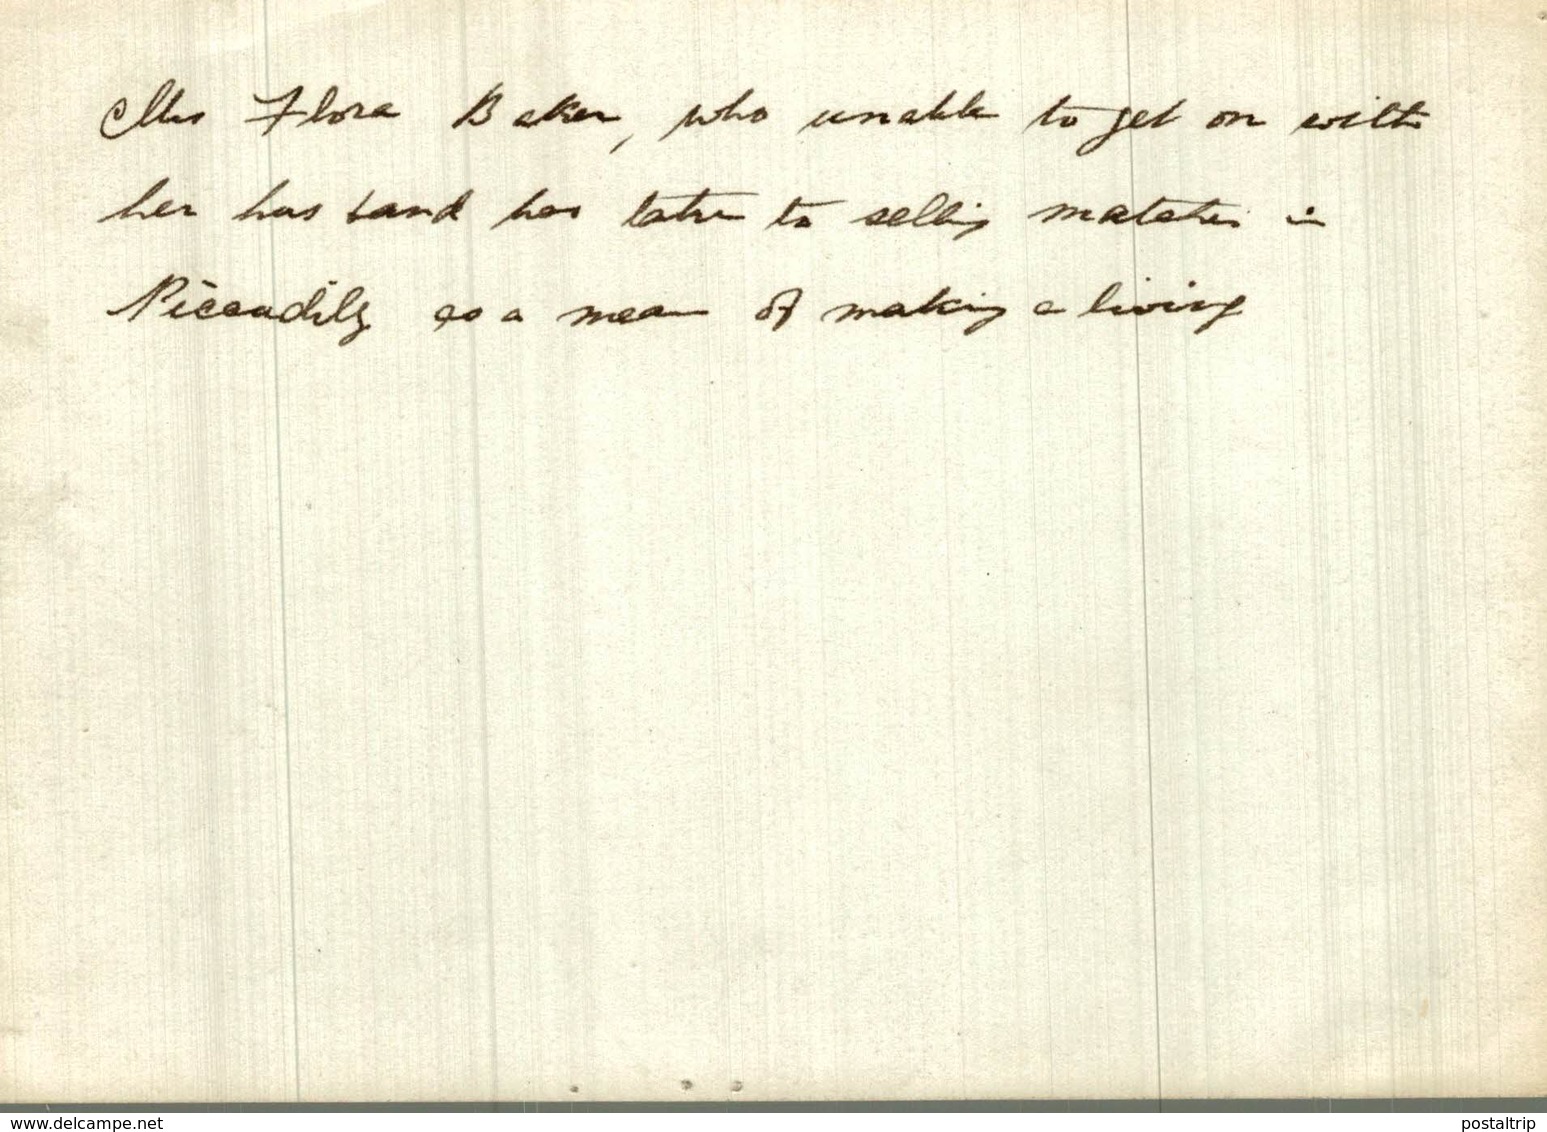 Mrs Flora Baker, who unable to get on with
her husband has taken to selling matches in
Piccadily as a mean of making a living
www.delcampe.net
postaltrip